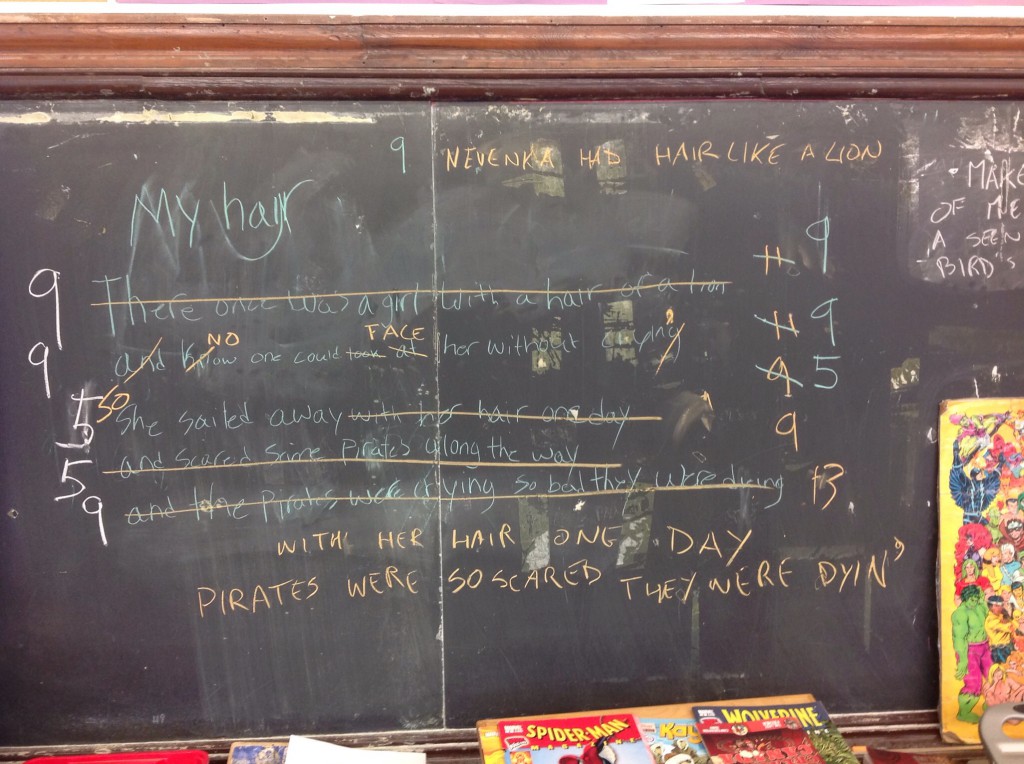 9 NEVENKA HAD HAIR LIKE A LION
My hair
MAKE
OF ME
A SEEN
BIRD'S
11 9
9 There once was a girl with a hair of a lion
NO FACE
9 and know one could look at her without crying' 11 9
9 5
5 SO She sailed away with her hair one day 9
5 and scared some Pirates along the way
9 and the Pirates were crying so bad they were dieing 13
WITH HER HAIR ONE DAY
PIRATES WERE SO SCARED THEY WERE DYIN'
SPIDER-MAN
MAGAZINE
WOLVERINE